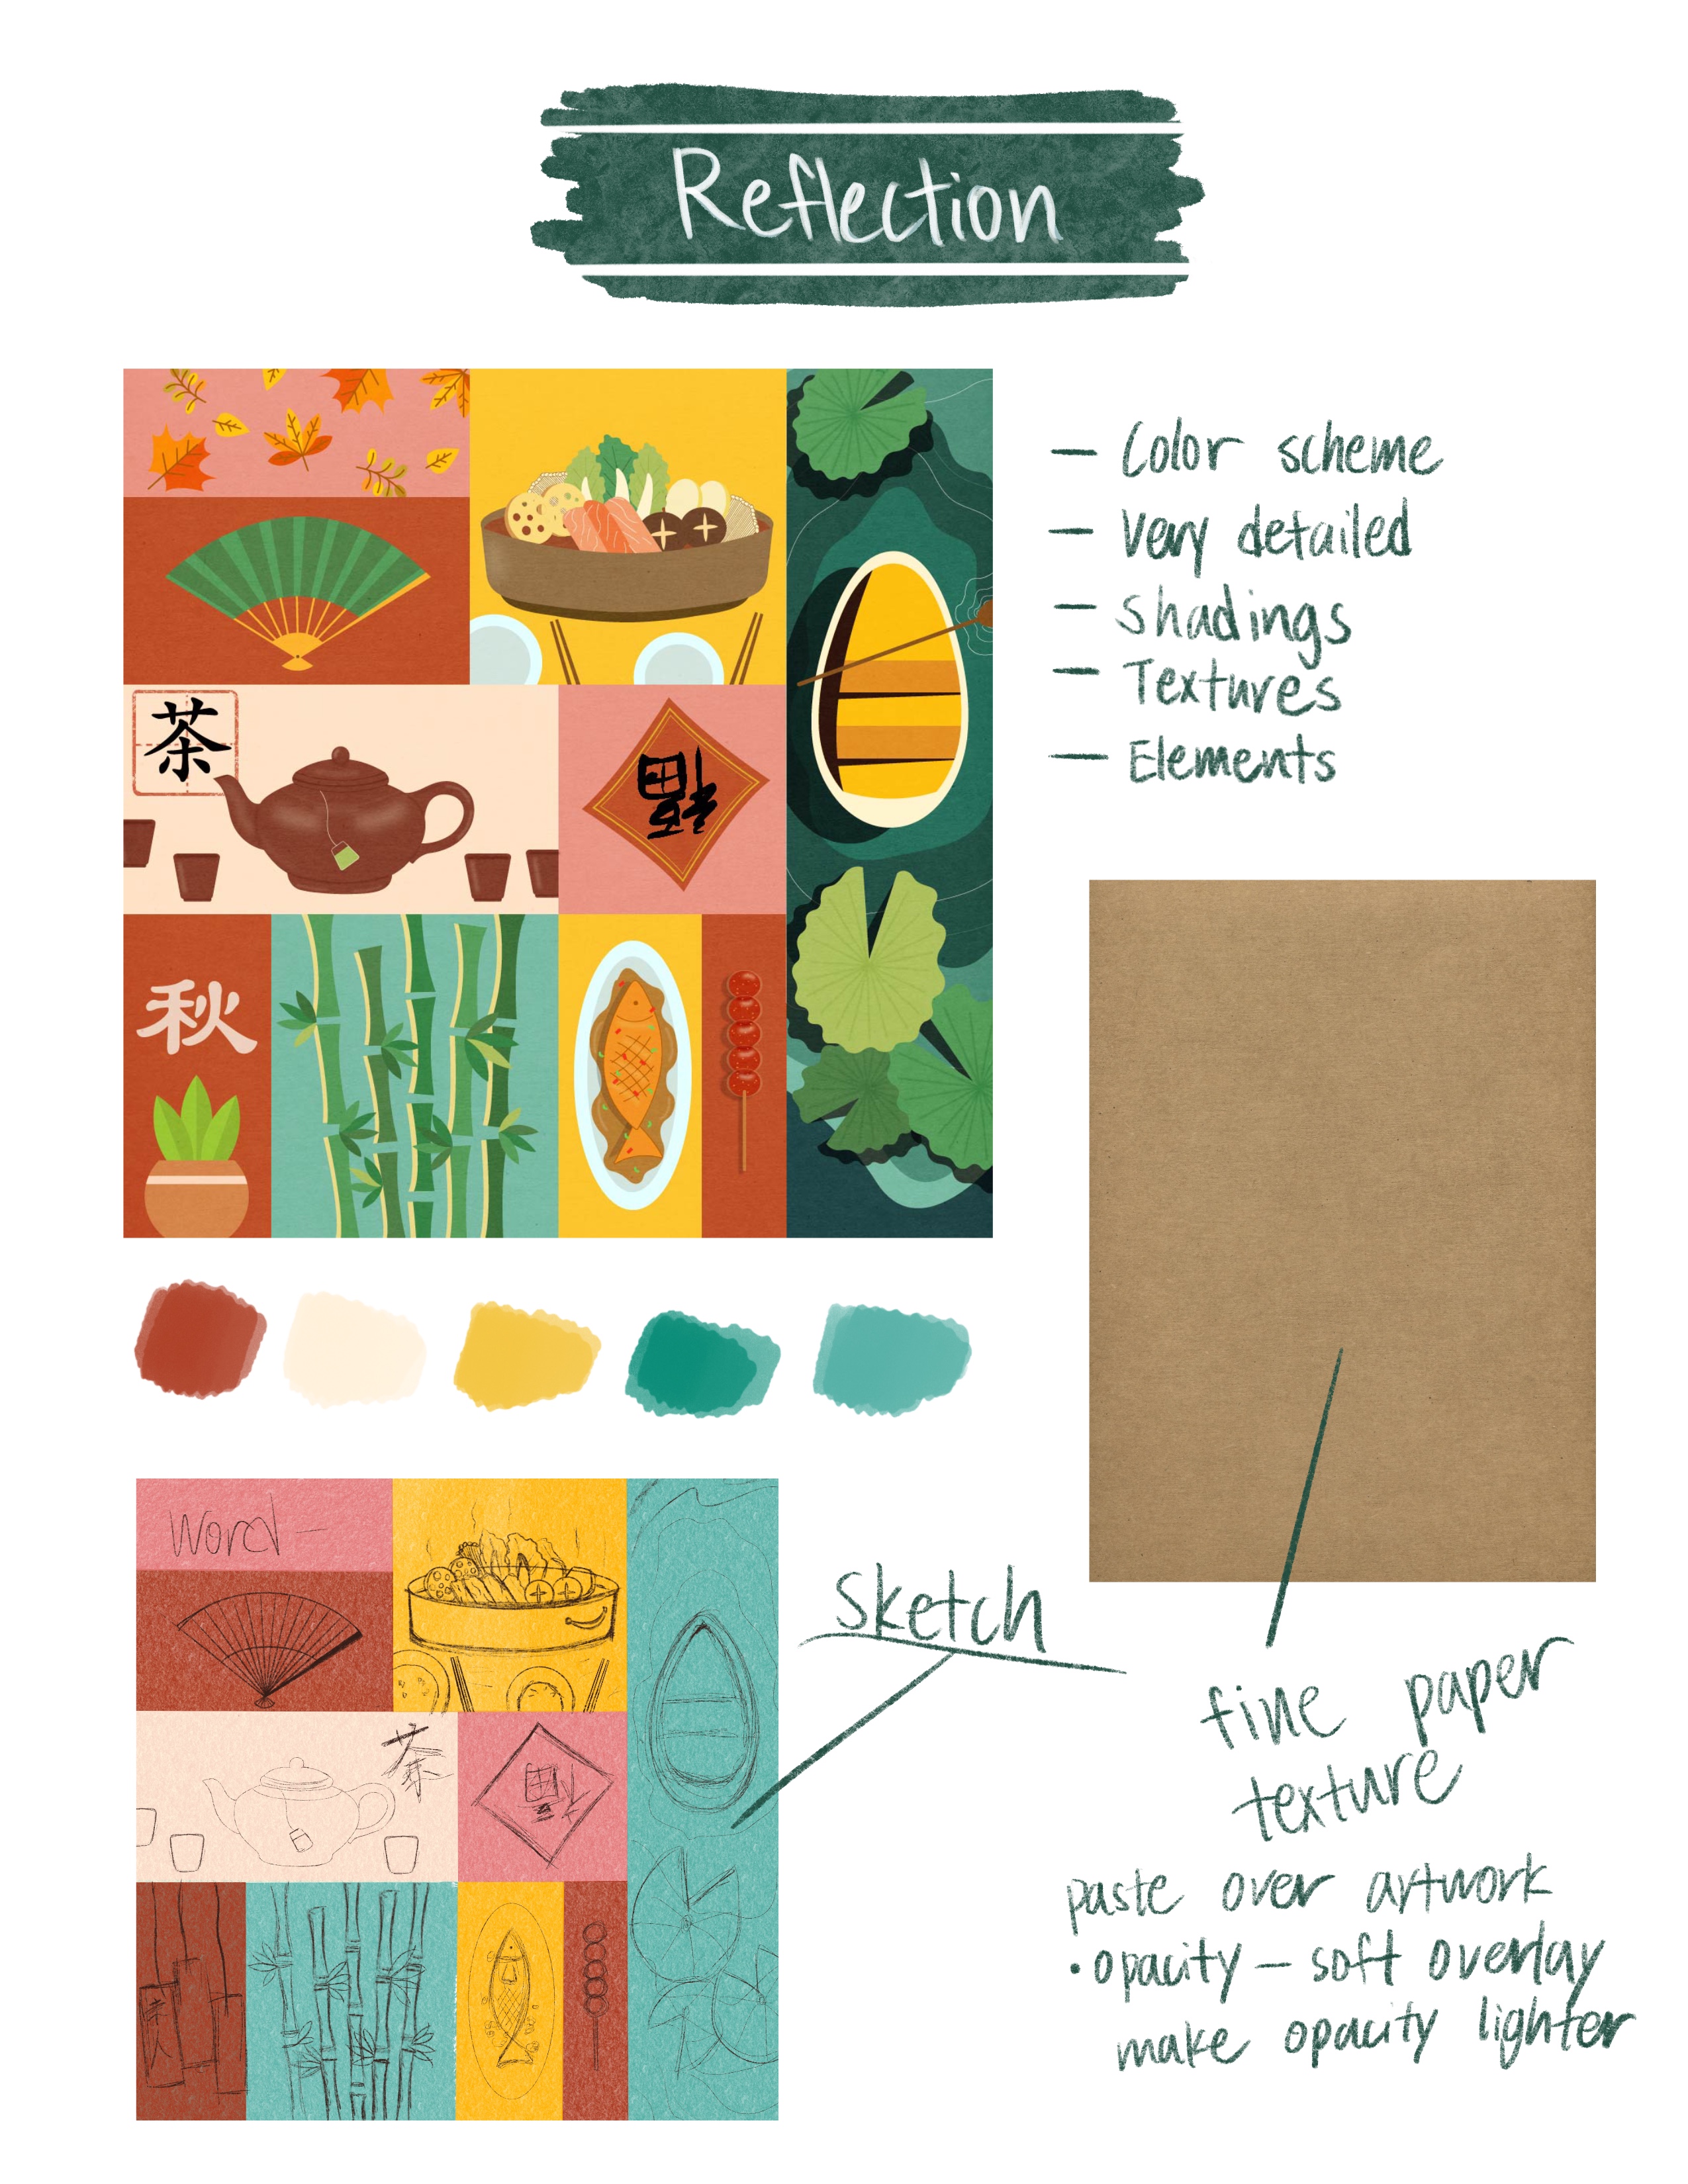 Reflection
茶
福
秋
— Color scheme
— Very detailed
— Shadings
— Textures
— Elements
Word —
茶
福
Sketch
fine paper
texture
paste over artwork
• opacity — soft overlay
make opacity lighter